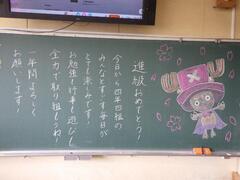 進級おめでとう!
今日から四年四組の
みんなとすごす毎日が
とても楽しみです!
お勉強も行事も遊びも
全力で取り組もうね!
一年間よろしく
お願いします!